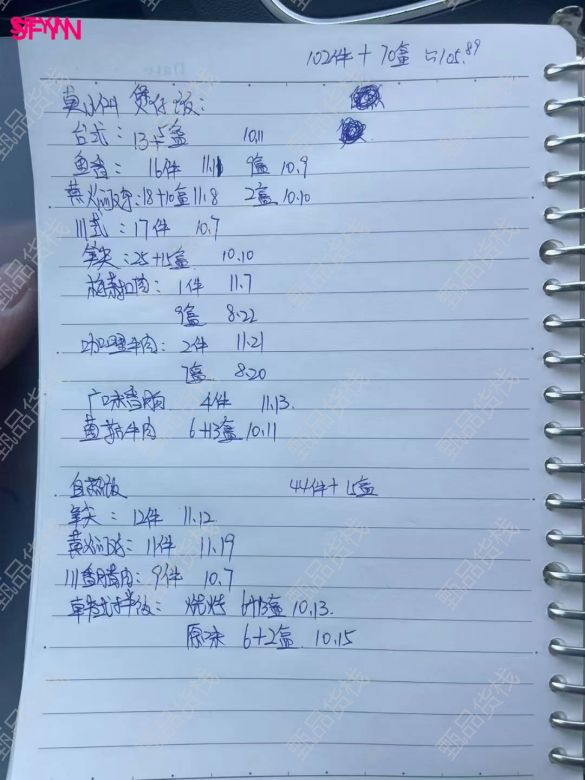 SFYN
Date
102件 + 70盒 ≒105.89
莫小仙 煲仔饭:
台式: 13+5盒 10.11
鱼香: 16件 11.11 9盒 10.9
黄焖: 18+10盒 11.8 2盒 10.10
川式: 17件 10.7
笋尖: 25+15盒 10.10
梅菜扣肉: 1件 11.7
9盒 8.22
咖喱牛肉: 2件 11.21
7盒 8.20
广味香肠 4件 11.13.
牛肉 6+13盒 10.11
自热饭 44件+15盒
笋尖: 12件 11.12
黄焖: 11件 11.19
川香腊肉: 9件 10.7
韩式拌饭: 烧烤 6+13盒 10.13.
原味 6+2盒 10.15
甄品货栈